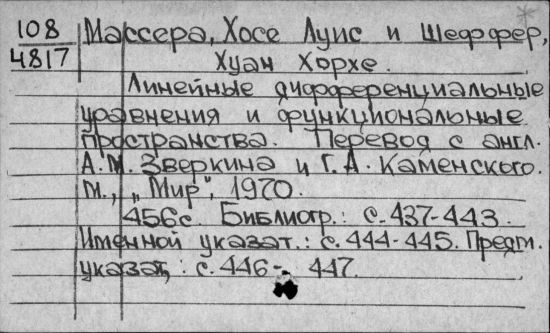 108
4817
Массера, Хосе Луис и Шеффер,
Хуан Хорхе.
Линейные дифференциальные
уравнения и функциональные
пространства. Перевод с англ.
А.М. Зверкина и Г.А. Каменского.
М., „Мир", 1970.
456с. Библиогр.: с.437-443.
Именной указат.: с.444-445. Предм.
указат.: с.446-447.